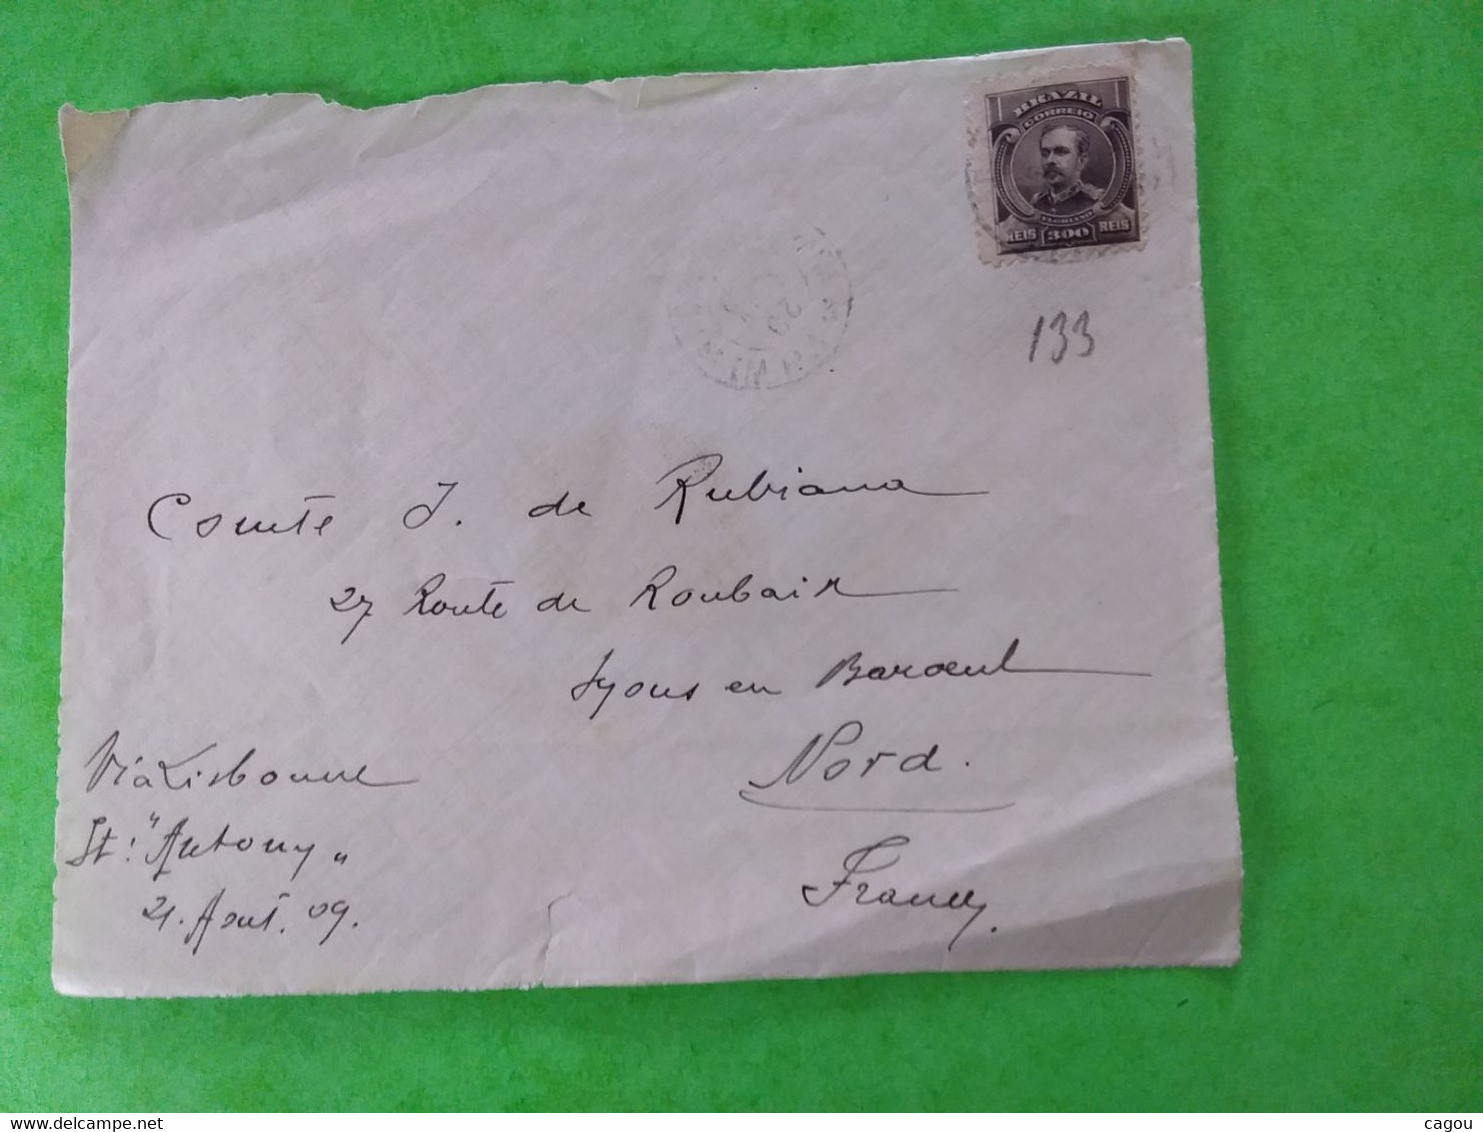 BRAZIL
CORREIO
FLORIANO
REIS 300 REIS
133
Comte J. de Rubiana
27 Route de Roubaix
Mons en Baroeul
Nord.
France.
Via Lisbonne
St: "Antony"
21. Août. 09.
cagou